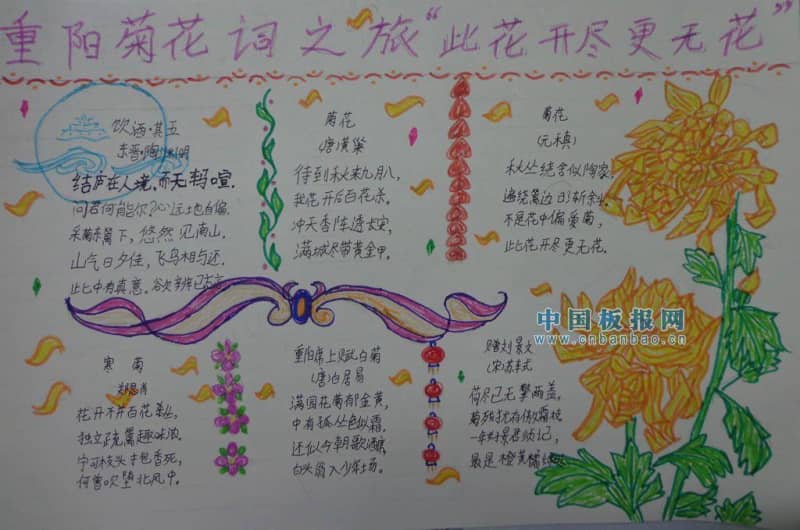 重阳菊花词之旅“此花开尽更无花”
饮酒·其五
东晋·陶渊明
结庐在人境,而无车马喧.
问君何能尔?心远地自偏.
采菊东篱下,悠然见南山.
山气日夕佳,飞鸟相与还.
此中有真意.欲辨已忘言
菊花
(唐)黄巢
待到秋来九月八,
我花开后百花杀.
冲天香阵透长安,
满城尽带黄金甲.
菊花
(元稹)
秋丛绕舍似陶家.
遍绕篱边日渐斜.
不是花中偏爱菊,
此花开尽更无花.
寒菊
郑思肖
花开不并百花丛,
独立疏篱趣味浓.
宁可枝头抱香死,
何曾吹堕北风中.
重阳席上赋白菊
(唐)白居易
满园花菊郁金黄,
中有孤丛色似霜.
还似今朝歌酒席,
白头翁入少年场.
赠刘景文
(宋)苏轼
荷尽已无擎雨盖,
菊残犹有傲霜枝
一年好景君须记,
最是橙黄橘绿
中国板报网
www.cnbanbao.cn